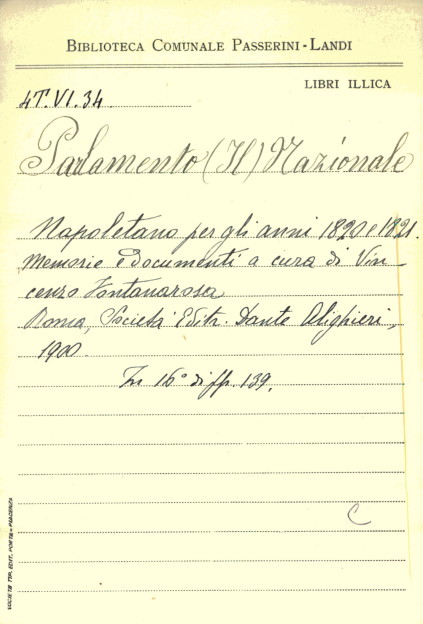 BIBLIOTECA COMUNALE PASSERINI-LANDI
LIBRI ILLICA
4T.VI.34
Parlamento (Il) Nazionale
Napoletano per gli anni 1820 e 1821.
Memorie e documenti a cura di Vin
cenzo Fontanarosa
Roma, Società Editr. Dante Alighieri,
1900.
In 16° di pp. 139.
C
SOCIETÀ TIP. EDIT. PORTA-PIACENZA